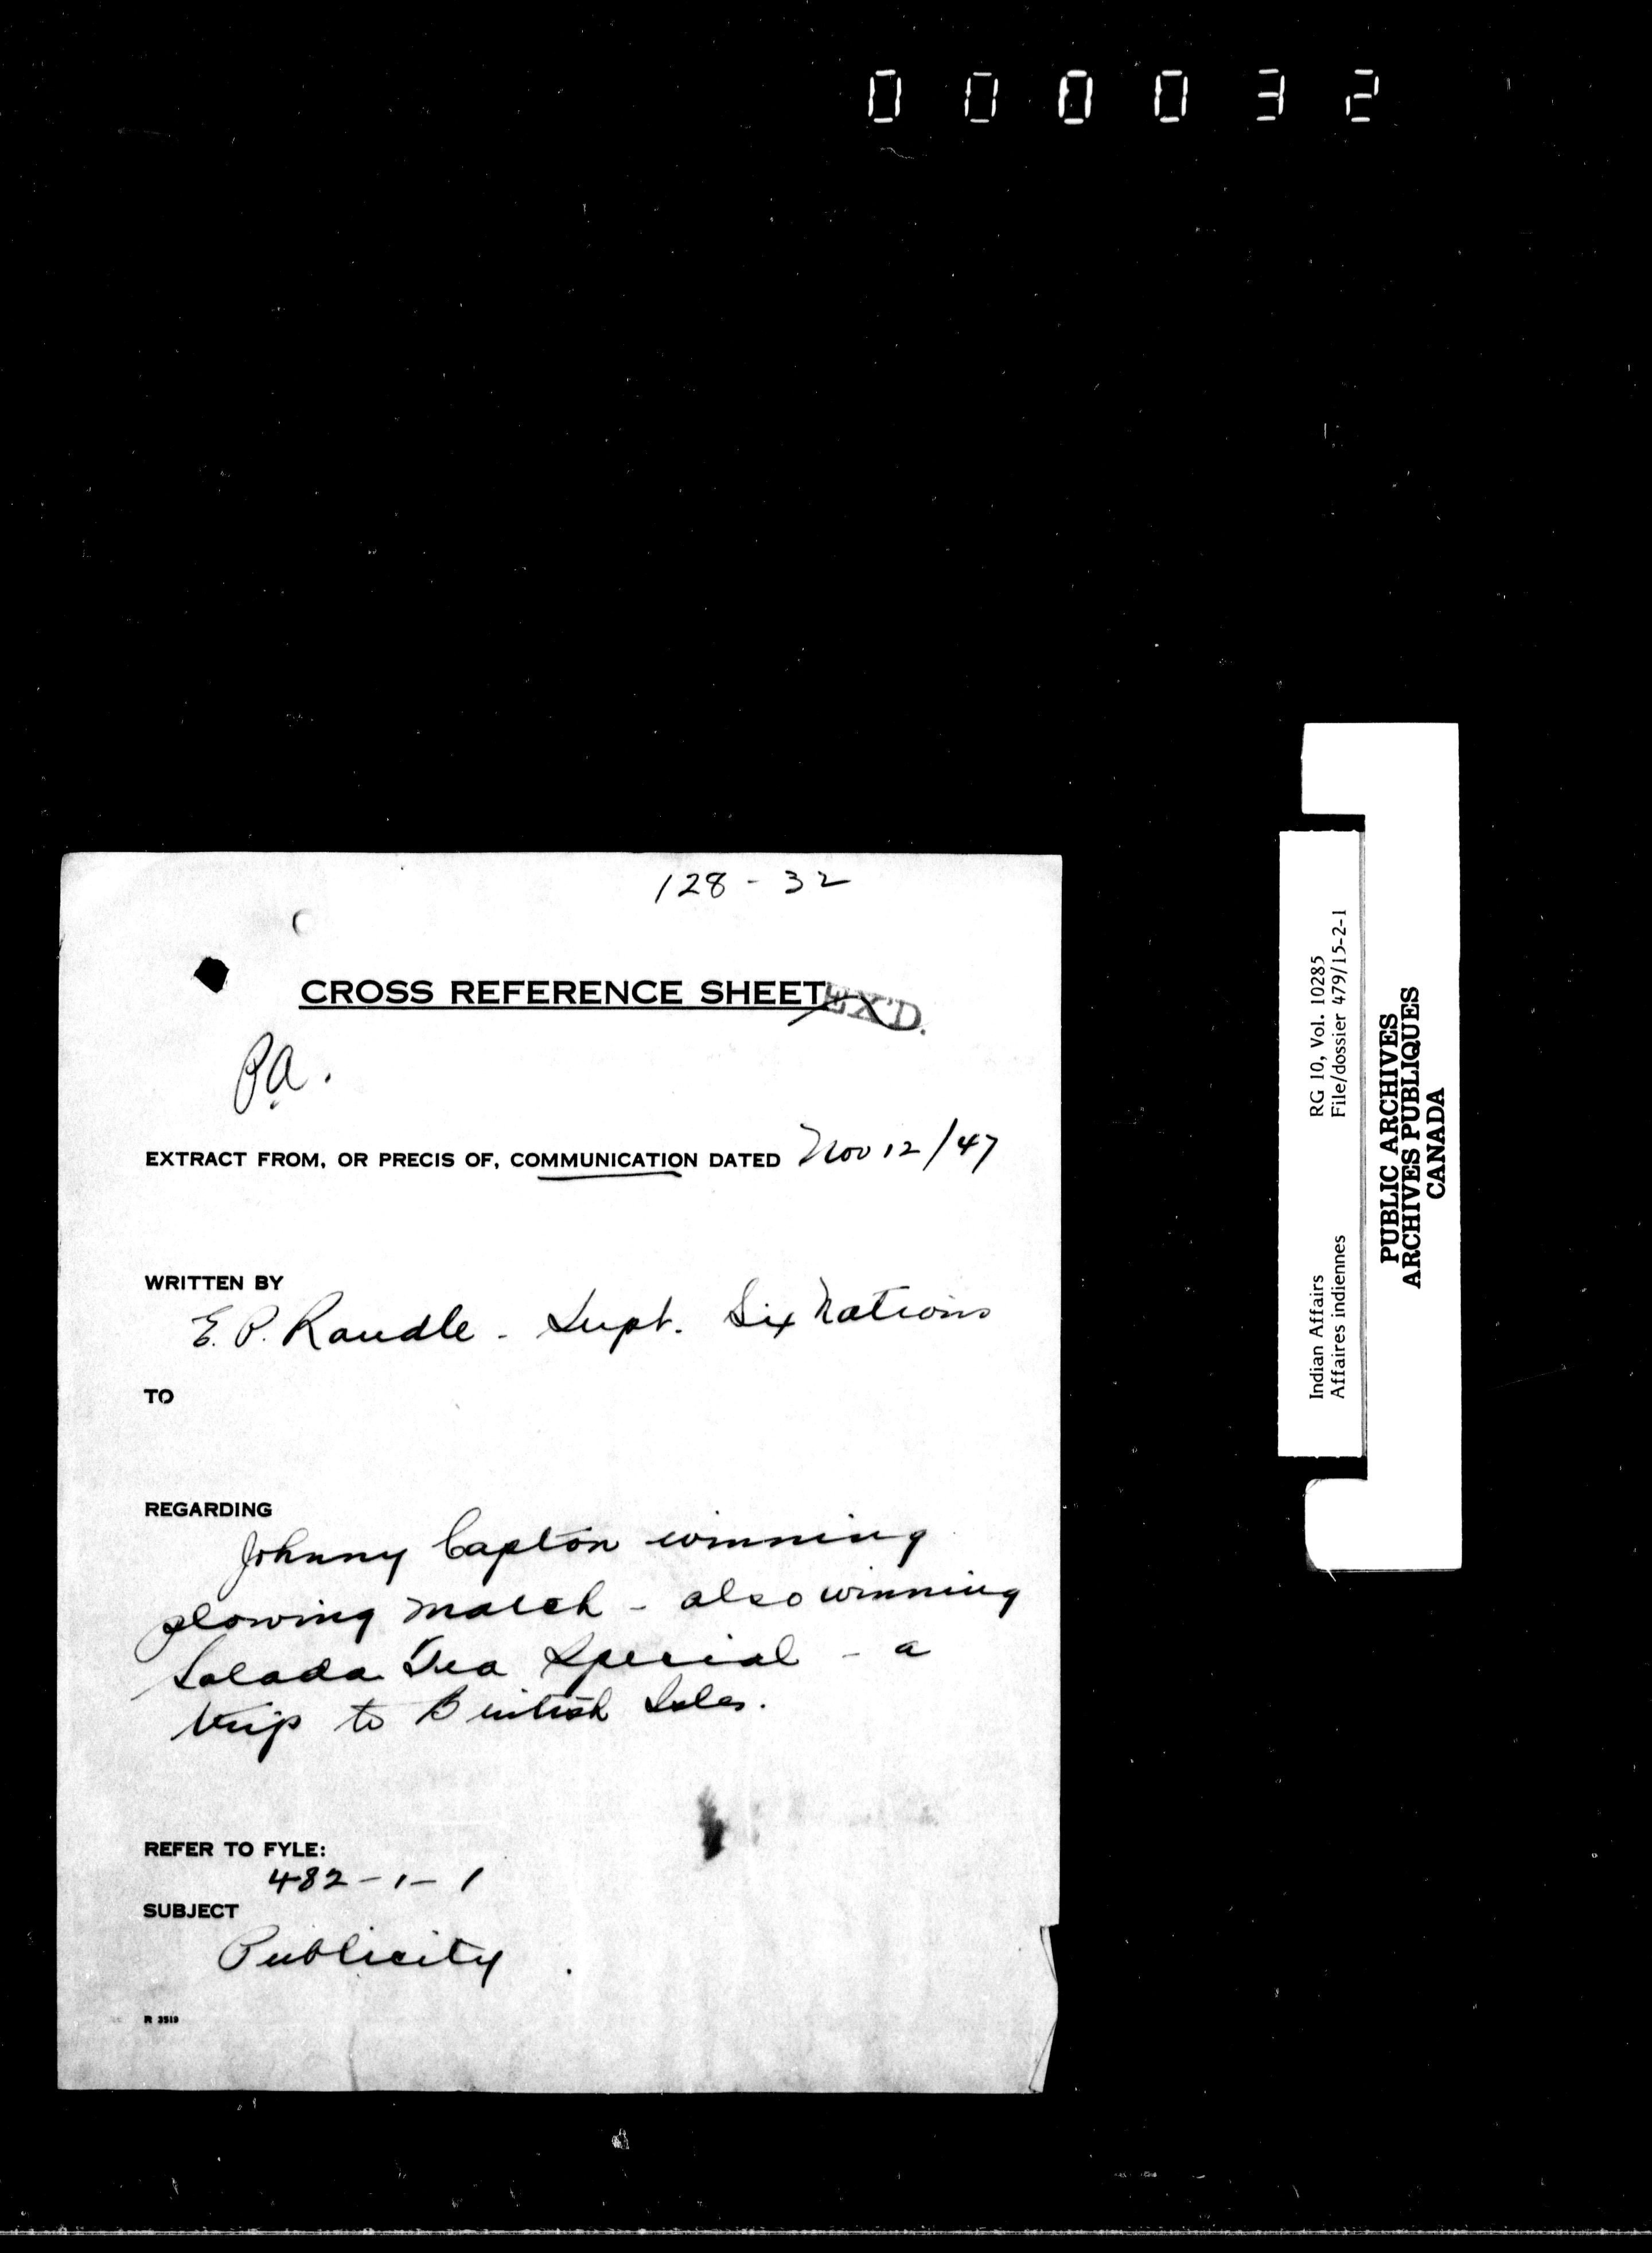 000032
128-32
CROSS REFERENCE SHEET
EX'D.
P.A.
EXTRACT FROM, OR PRECIS OF, COMMUNICATION DATED Nov 12/47
WRITTEN BY
E. P. Randle - Supt. Six Nations
TO
REGARDING
Johnny Capton winning
plowing match - also winning
Salada Tea Special - a
trip to British Isles.
REFER TO FYLE:
482-1-1
SUBJECT
Publicity.
R 3519
Indian Affairs RG 10, Vol. 10285
Affaires indiennes File/dossier 479/15-2-1
PUBLIC ARCHIVES
ARCHIVES PUBLIQUES
CANADA